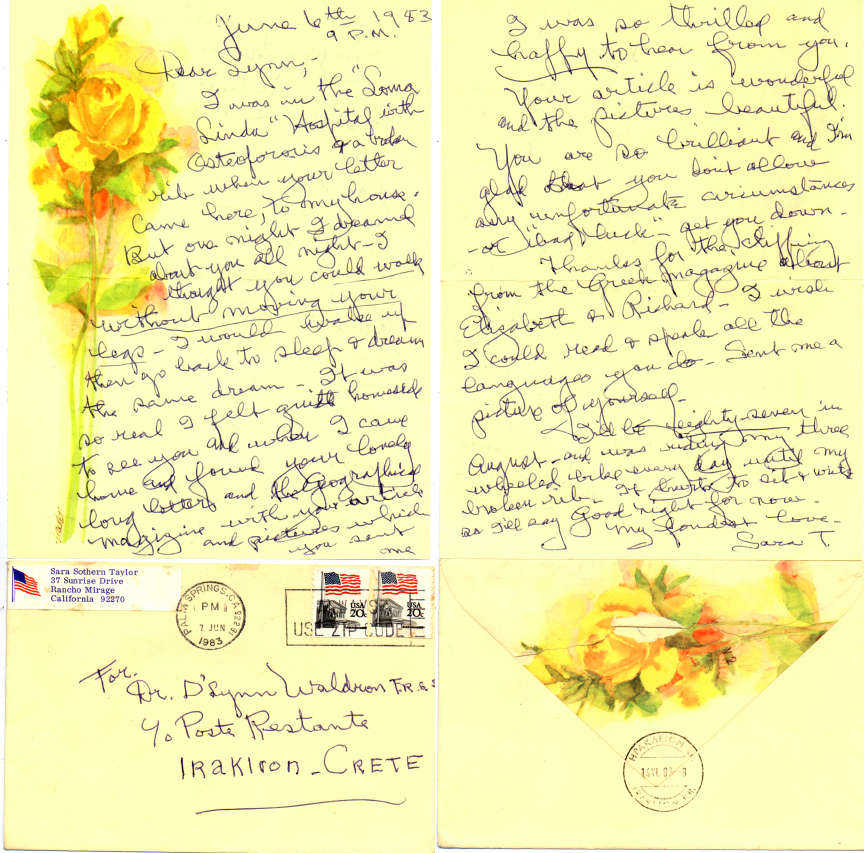 June 6th 1983
9 P.M.
Dear Lynn,-
I was in the "Loma
Linda" Hospital with
Osteoporosis & a broken
rib when your letter
came here, to my house.
But one night I dreamed
about you all night - I
thought you could walk
without moving your
legs - I would wake up
then go back to sleep & dream
the same dream - It was
so real I felt quite homesick
to see you and when I came
home and found your lovely
long letters and the Geographical
magizine with your article
and pictures which
you sent
me
I was so thrilled and
happy to hear from you.
Your article is wonderful
and the pictures beautiful.
You are so brilliant and I'm
glad that you don't allow
any "unfortunate circumstances
- or "bad luck" - get you down -
Thanks for the clipping
from the Greek magazine about
Elizabeth & Richard - I wish
I could read & speak all the
languages you do - Sent me a
picture of yourself -
Will be eighty-seven in
August - and was riding my three
wheeled bike every day until my
broken rib. It hurts to sit & write
so I'll say Good night for now -
My fondest love -
Sara T.
Sara Sothern Taylor
37 Sunrise Drive
Rancho Mirage
California 92270
PALM SPRINGS, CA 922
PM
7 JUN
1983
USE ZIP CODE
USA
20c
USA
20c
For.
Dr. D'Lynn Waldron F.R.G.S
c/o Poste Restante
IRAKLION - CRETE